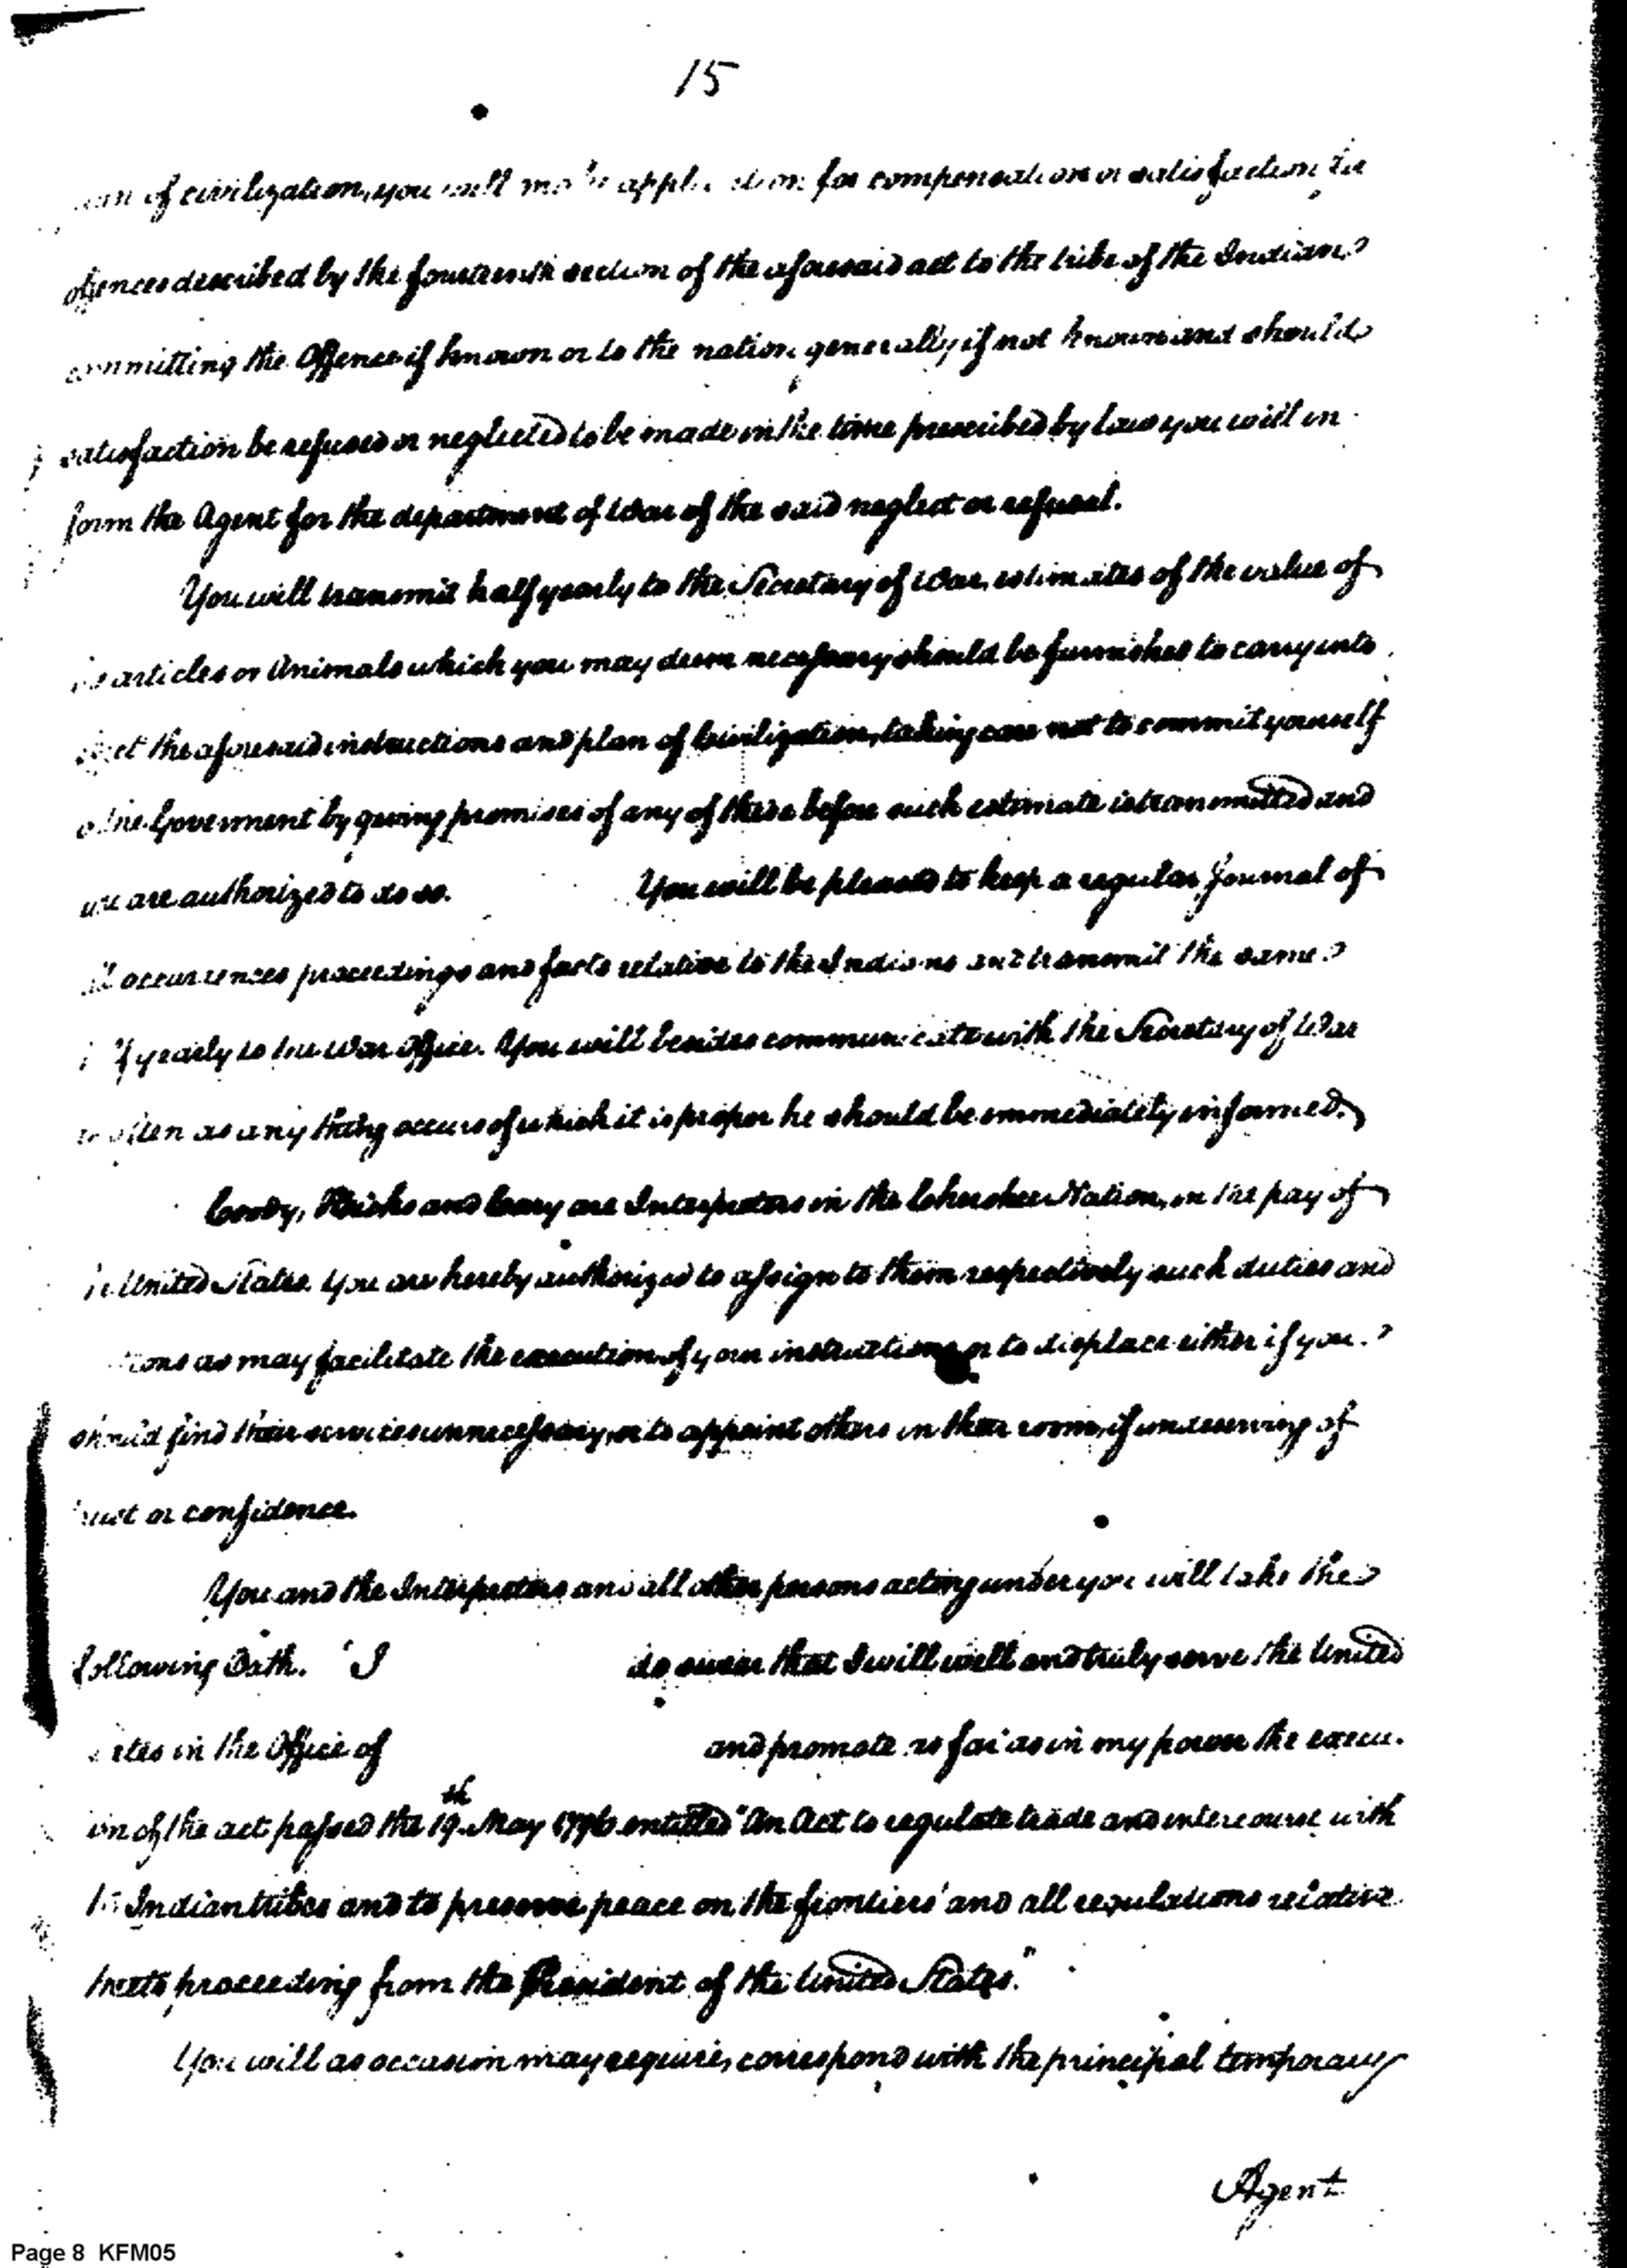 15
of civilization, you will make application for compensation or satisfaction for
offences described by the fourteenth section of the aforesaid act to the tribe of the Indians
committing the Offence if known or to the nation generally if not known and should
satisfaction be refused or neglected to be made in the time prescribed by law you will in
form the Agent for the department of War of the said neglect or refusal.
You will transmit half yearly to the Secretary of War, estimates of the value of
articles or Animals which you may deem necessary should be furnished to carry into
the aforesaid instructions and plan of Civilization, taking care not to commit yourself
Goverment by giving promises of any of these before such estimate is transmitted and
are authorized to do so. You will be pleased to keep a regular Journal of
occurrences proceedings and facts relative to the Indians and transmit the same
yearly to the War Office. You will besides communicate with the Secretary of War
often as any thing occurs of which it is proper he should be immediately informed.
and are Interpreters in the Cherokee Nation, in the pay of
United States. You are hereby authorized to assign to them respectively such duties and
as may facilitate the execution of your instructions or to displace either if you
should find their services unnecessary, or to appoint others in their room, if undeserving of
trust or confidence.
You and the Interpreters and all other persons acting under you will take the
following Oath. 'I do swear that I will well and truly serve the United
in the Office of and promote as far as in my power the execu-
of the act passed the 19th May 1796 entitled "An Act to regulate trade and intercourse with
Indian tribes and to preserve peace on the frontiers' and all regulations relative
proceeding from the President of the United States."
You will as occasion may require, correspond with the principal temporary
Agent
Page 8 KFM05